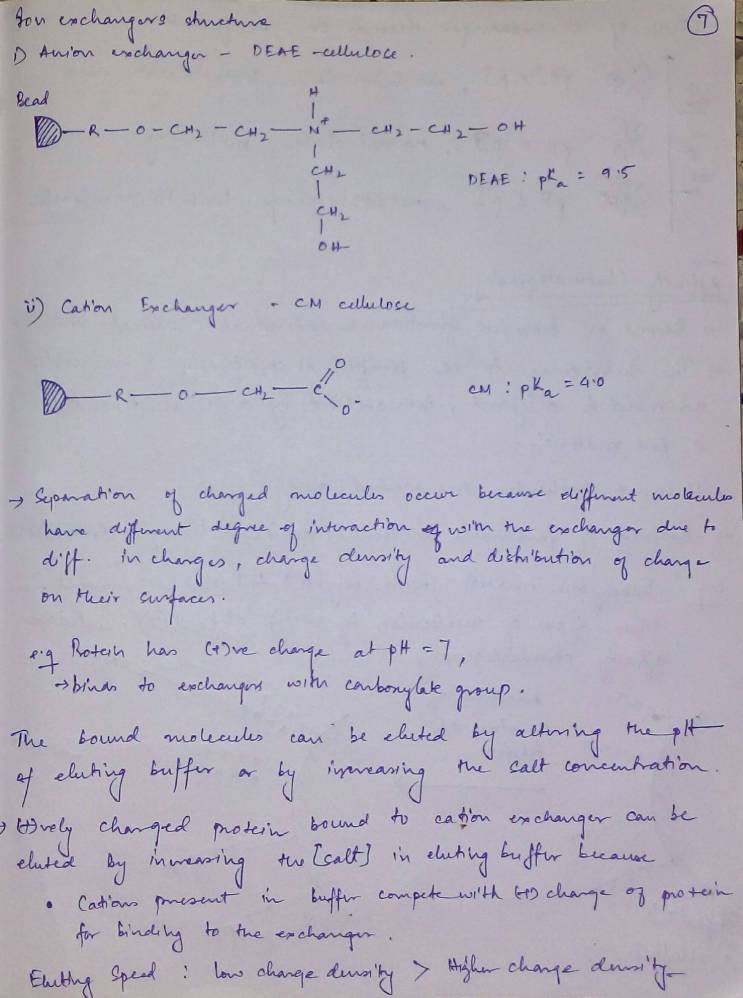 Ion exchangers structure
7
i) Anion exchanger - DEAE -cellulose.
Bead
H
R - O - CH2 - CH2 - N+ - CH2 - CH2 - OH
CH2
DEAE : pKa = 9.5
CH2
OH
ii) Cation Exchanger - CM cellulose
O
R - O - CH2 - C
CM : pKa = 4.0
O-
→ Separation of charged molecules occur because different molecules
have different degree of interaction with the exchanger due to
diff. in charges, charge density and distribution of charge
on their surfaces.
e.g Protein has (+)ve charge at pH = 7,
→ binds to exchangers with carboxylate group.
The bound molecules can be eluted by altering the pH
of eluting buffer or by increasing the salt concentration.
→ (+)vely charged protein bound to cation exchanger can be
eluted by increasing the [salt] in eluting buffer because
• Cations present in buffer compete with (+) charge of protein
for binding to the exchanger.
Eluting Speed : low charge density > Higher charge density.